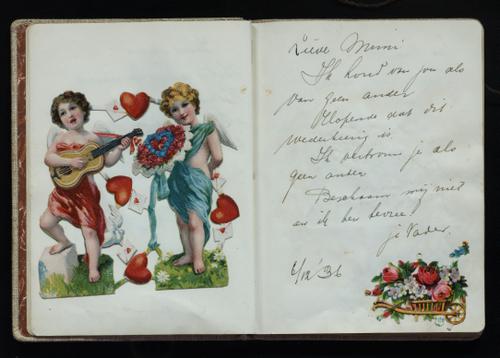 Lieve Mimi
Ik houd van jou als
van geen ander
Hopende dat dit
wederkeerig is
Ik vertrouw je als
geen ander
Beschaam mij niet
en ik ben tevree.
je Vader.
6/12 '36